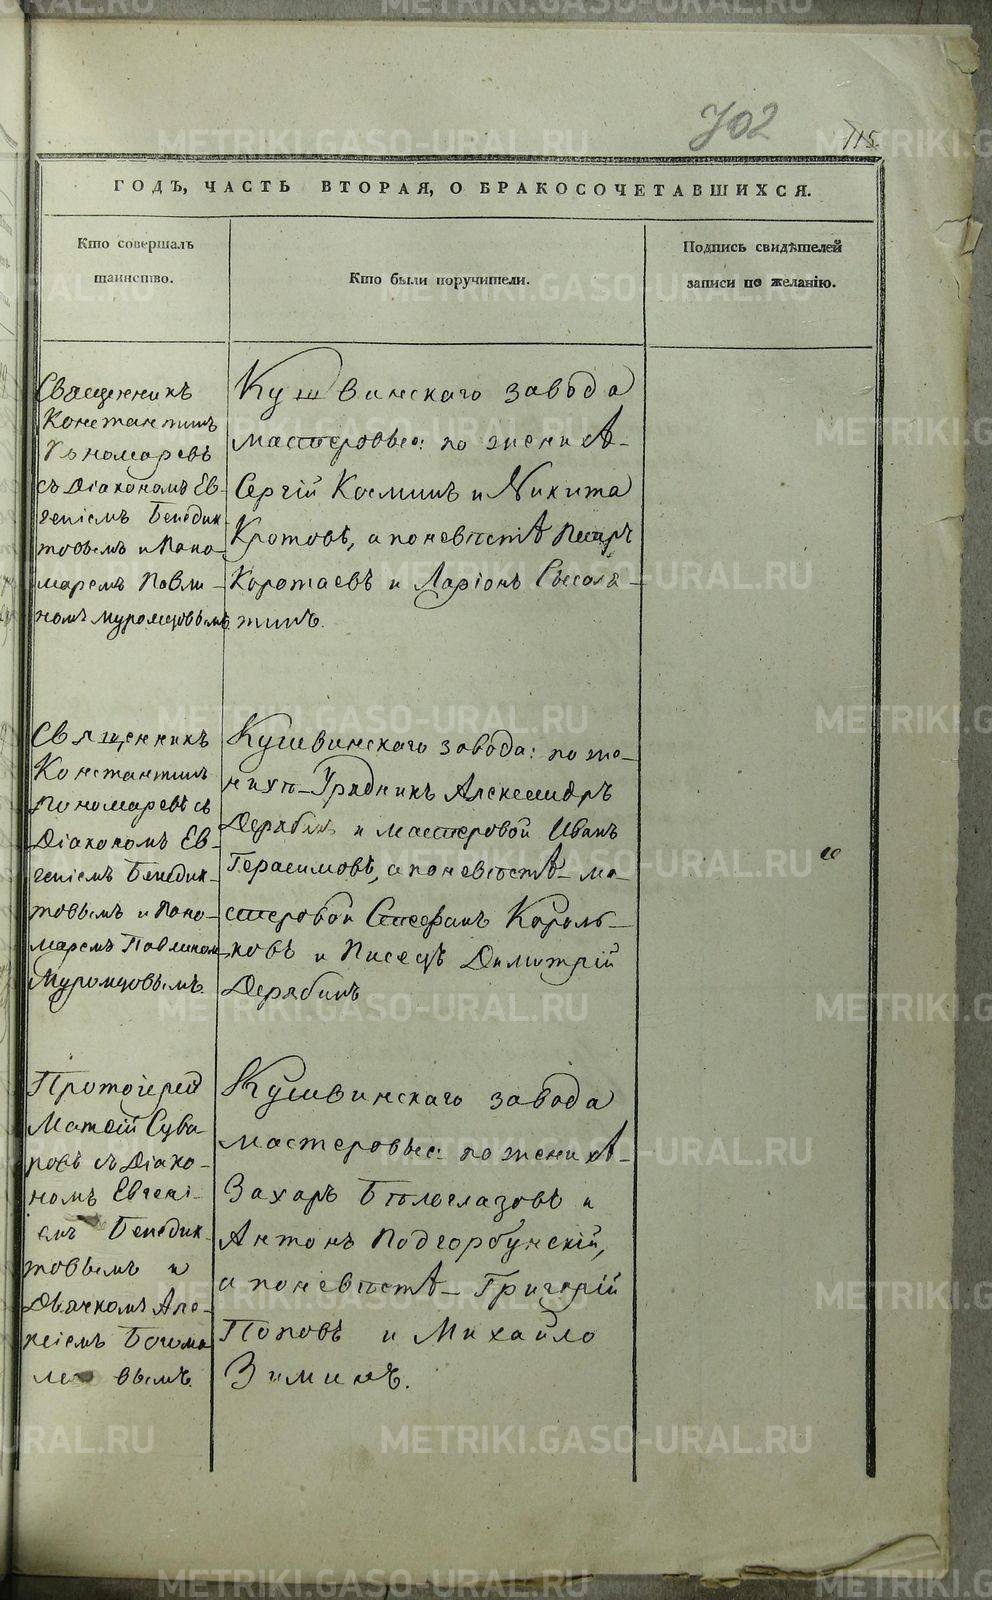 702
115
ГОДЪ, ЧАСТЬ ВТОРАЯ, О БРАКОСОЧЕТАВШИХСЯ.
Кто совершалъ
таинство.
Кто были поручители.
Подпись свидѣтелей
записи по желанію.
Священникъ
Константинъ
Пономаревъ
съ Діакономъ Ев-
геніемъ Бенедик-
товымъ и Поно-
маремъ Павли-
номъ Муромцовымъ
Кушвинскаго завода
мастеровые: по женихѣ
Сергій Косминъ и Никита
Кротовъ, а по невѣстѣ Петръ
Коротаевъ и Ларіонъ
Священникъ
Константинъ
Пономаревъ съ
Діакономъ Ев-
геніемъ Бенедик-
товымъ и Поно-
маремъ Павлиномъ
Муромцовымъ.
Кушвинскаго завода: по же-
нихѣ Урядникъ Александръ
Дерябинъ и мастеровой Иванъ
Герасимовъ, а по невѣстѣ ма-
стеровой Стефанъ Король-
ковъ и Писецъ Димитрій
Дерябинъ
Протоіерей
Матѳій Сува-
ровъ съ Діако-
номъ Евгені-
емъ Бенедик-
товымъ и
Дьячкомъ Але-
ксіемъ Богома-
ловымъ.
Кушвинскаго завода
мастеровые: по женихѣ
Захаръ Бѣлоглазовъ и
Антонъ Подгорбунскій,
а по невѣстѣ Григорій
Поповъ и Михайло
Зиминъ.
METRIKI.GASO-URAL.RU